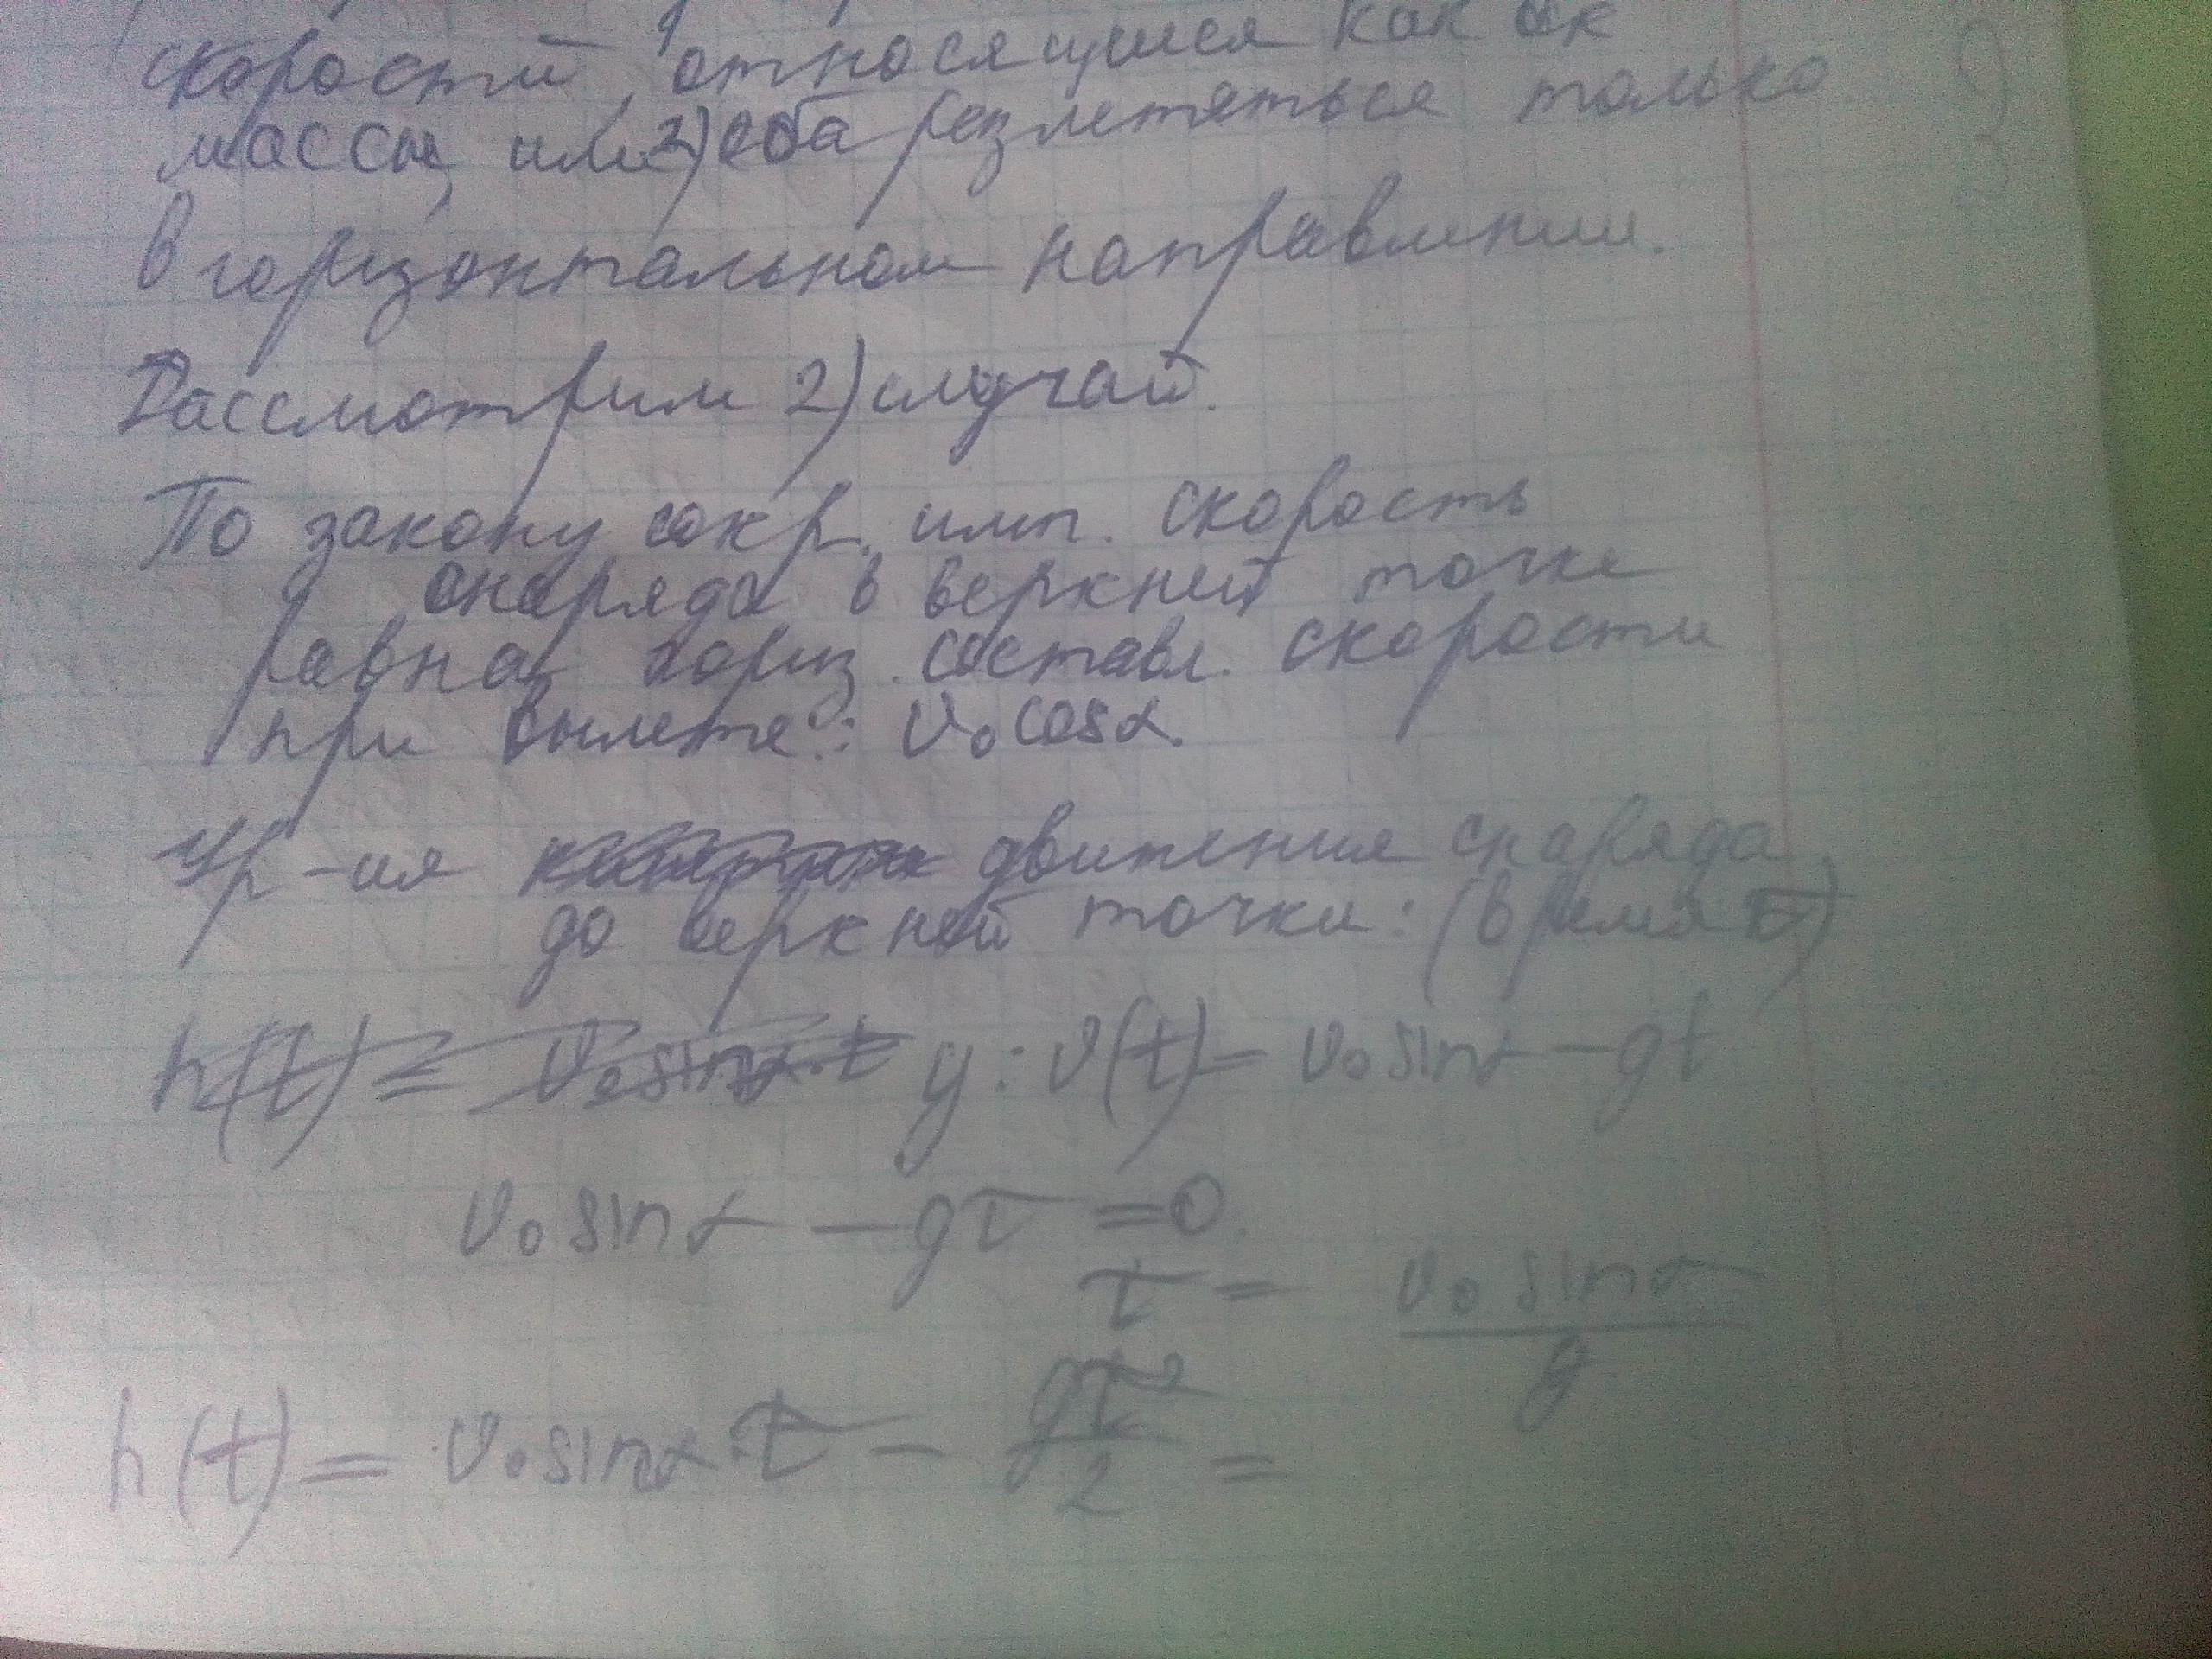 скоростий, относящиеся как их
массы, или 2) оба разлетяться только
в горизонтальном направлении.
Рассмотрим 2) случай.
По закону сохр. имп. скорость
снаряда в верхней точке
равна гориз. составл. скорости
при вылете: v₀cosα.
Ур-ия движения снаряда
до верхней точки: (время τ)
h(t) = v₀sinα·t y: v(t) = v₀sinα - gt
v₀sinα - gτ = 0
τ = v₀ sinα / g
h(t) = v₀sinα·τ - gτ²/2 =